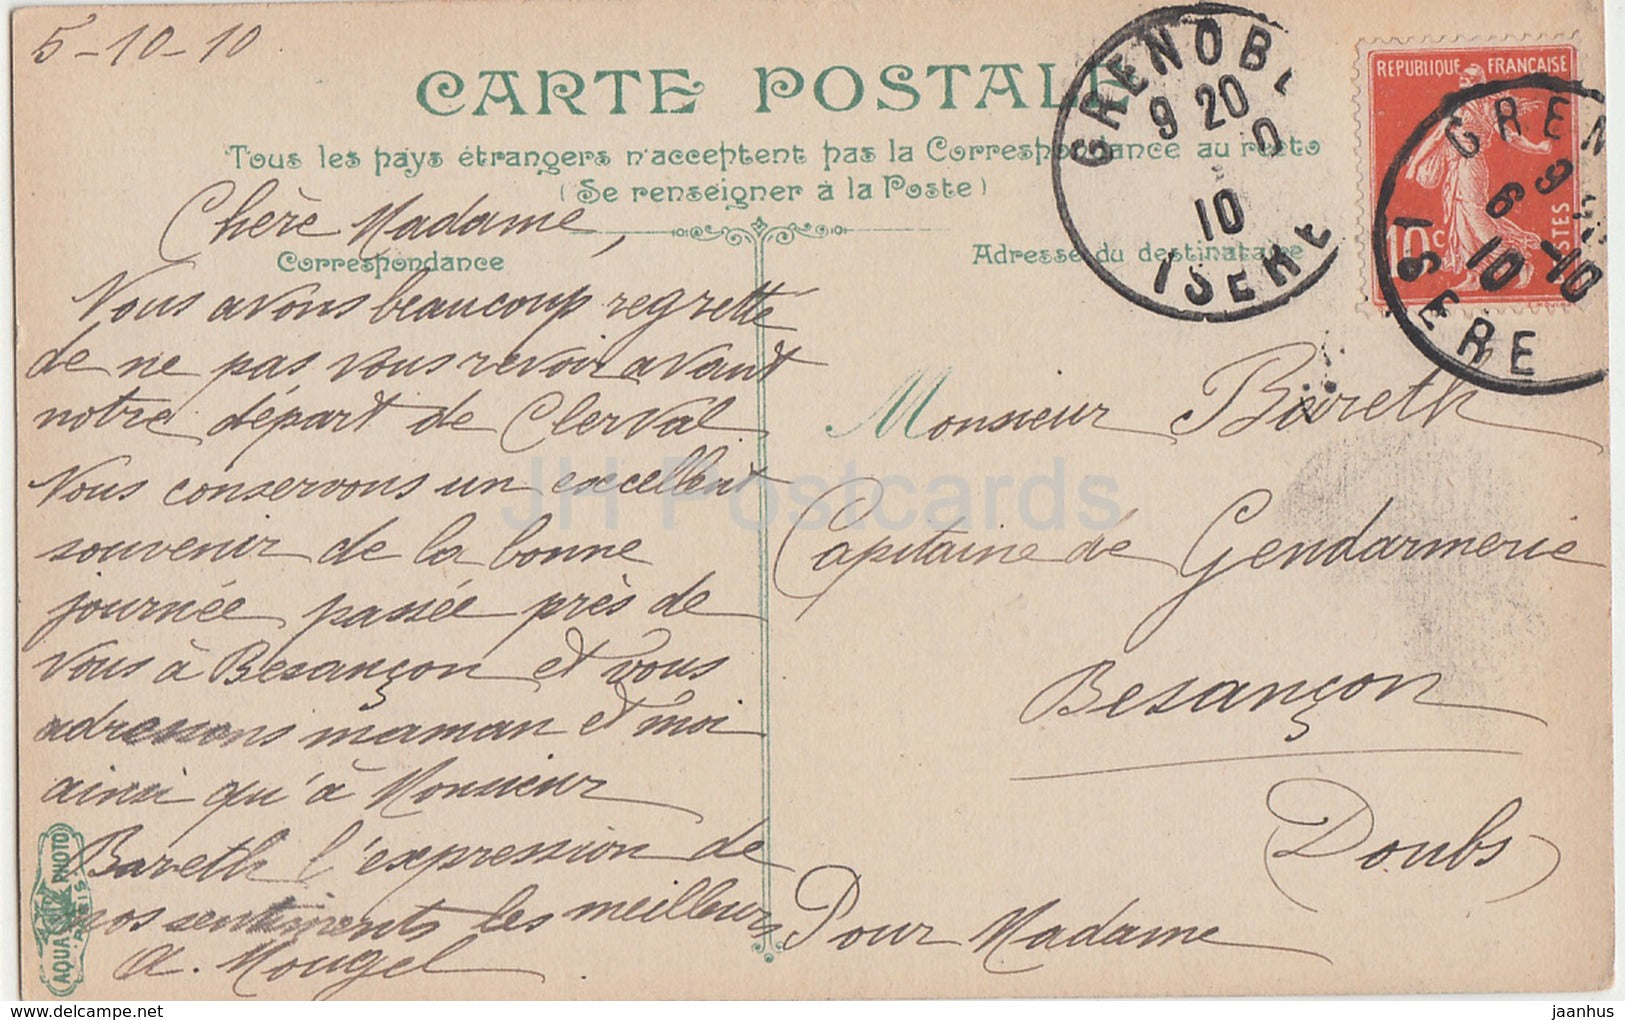 5-10-10
CARTE POSTALE
Tous les pays étrangers n'acceptent pas la Correspondance au recto
(Se renseigner à la Poste)
Correspondance
Adresse du destinataire
Chère Madame,
Nous avons beaucoup regretté
de ne pas vous revoir avant
notre départ de Clerval
Nous conservons un excellent
souvenir de la bonne
journée passée près de
vous à Besançon et vous
adressons maman et moi
ainsi qu'à Monsieur
Bareth l'expression de
nos sentiments les meilleurs
A. Mougel
Monsieur Bareth
Capitaine de Gendarmerie
Besançon
Doubs
Pour Madame
GRENOBLE
9 20
10
ISERE
REPUBLIQUE FRANÇAISE
POSTES
10c
GREN
9
6 -10
10
ISERE
AQUA PHOTO
PARIS
JH Postcards
www.delcampe.net
jaanhus